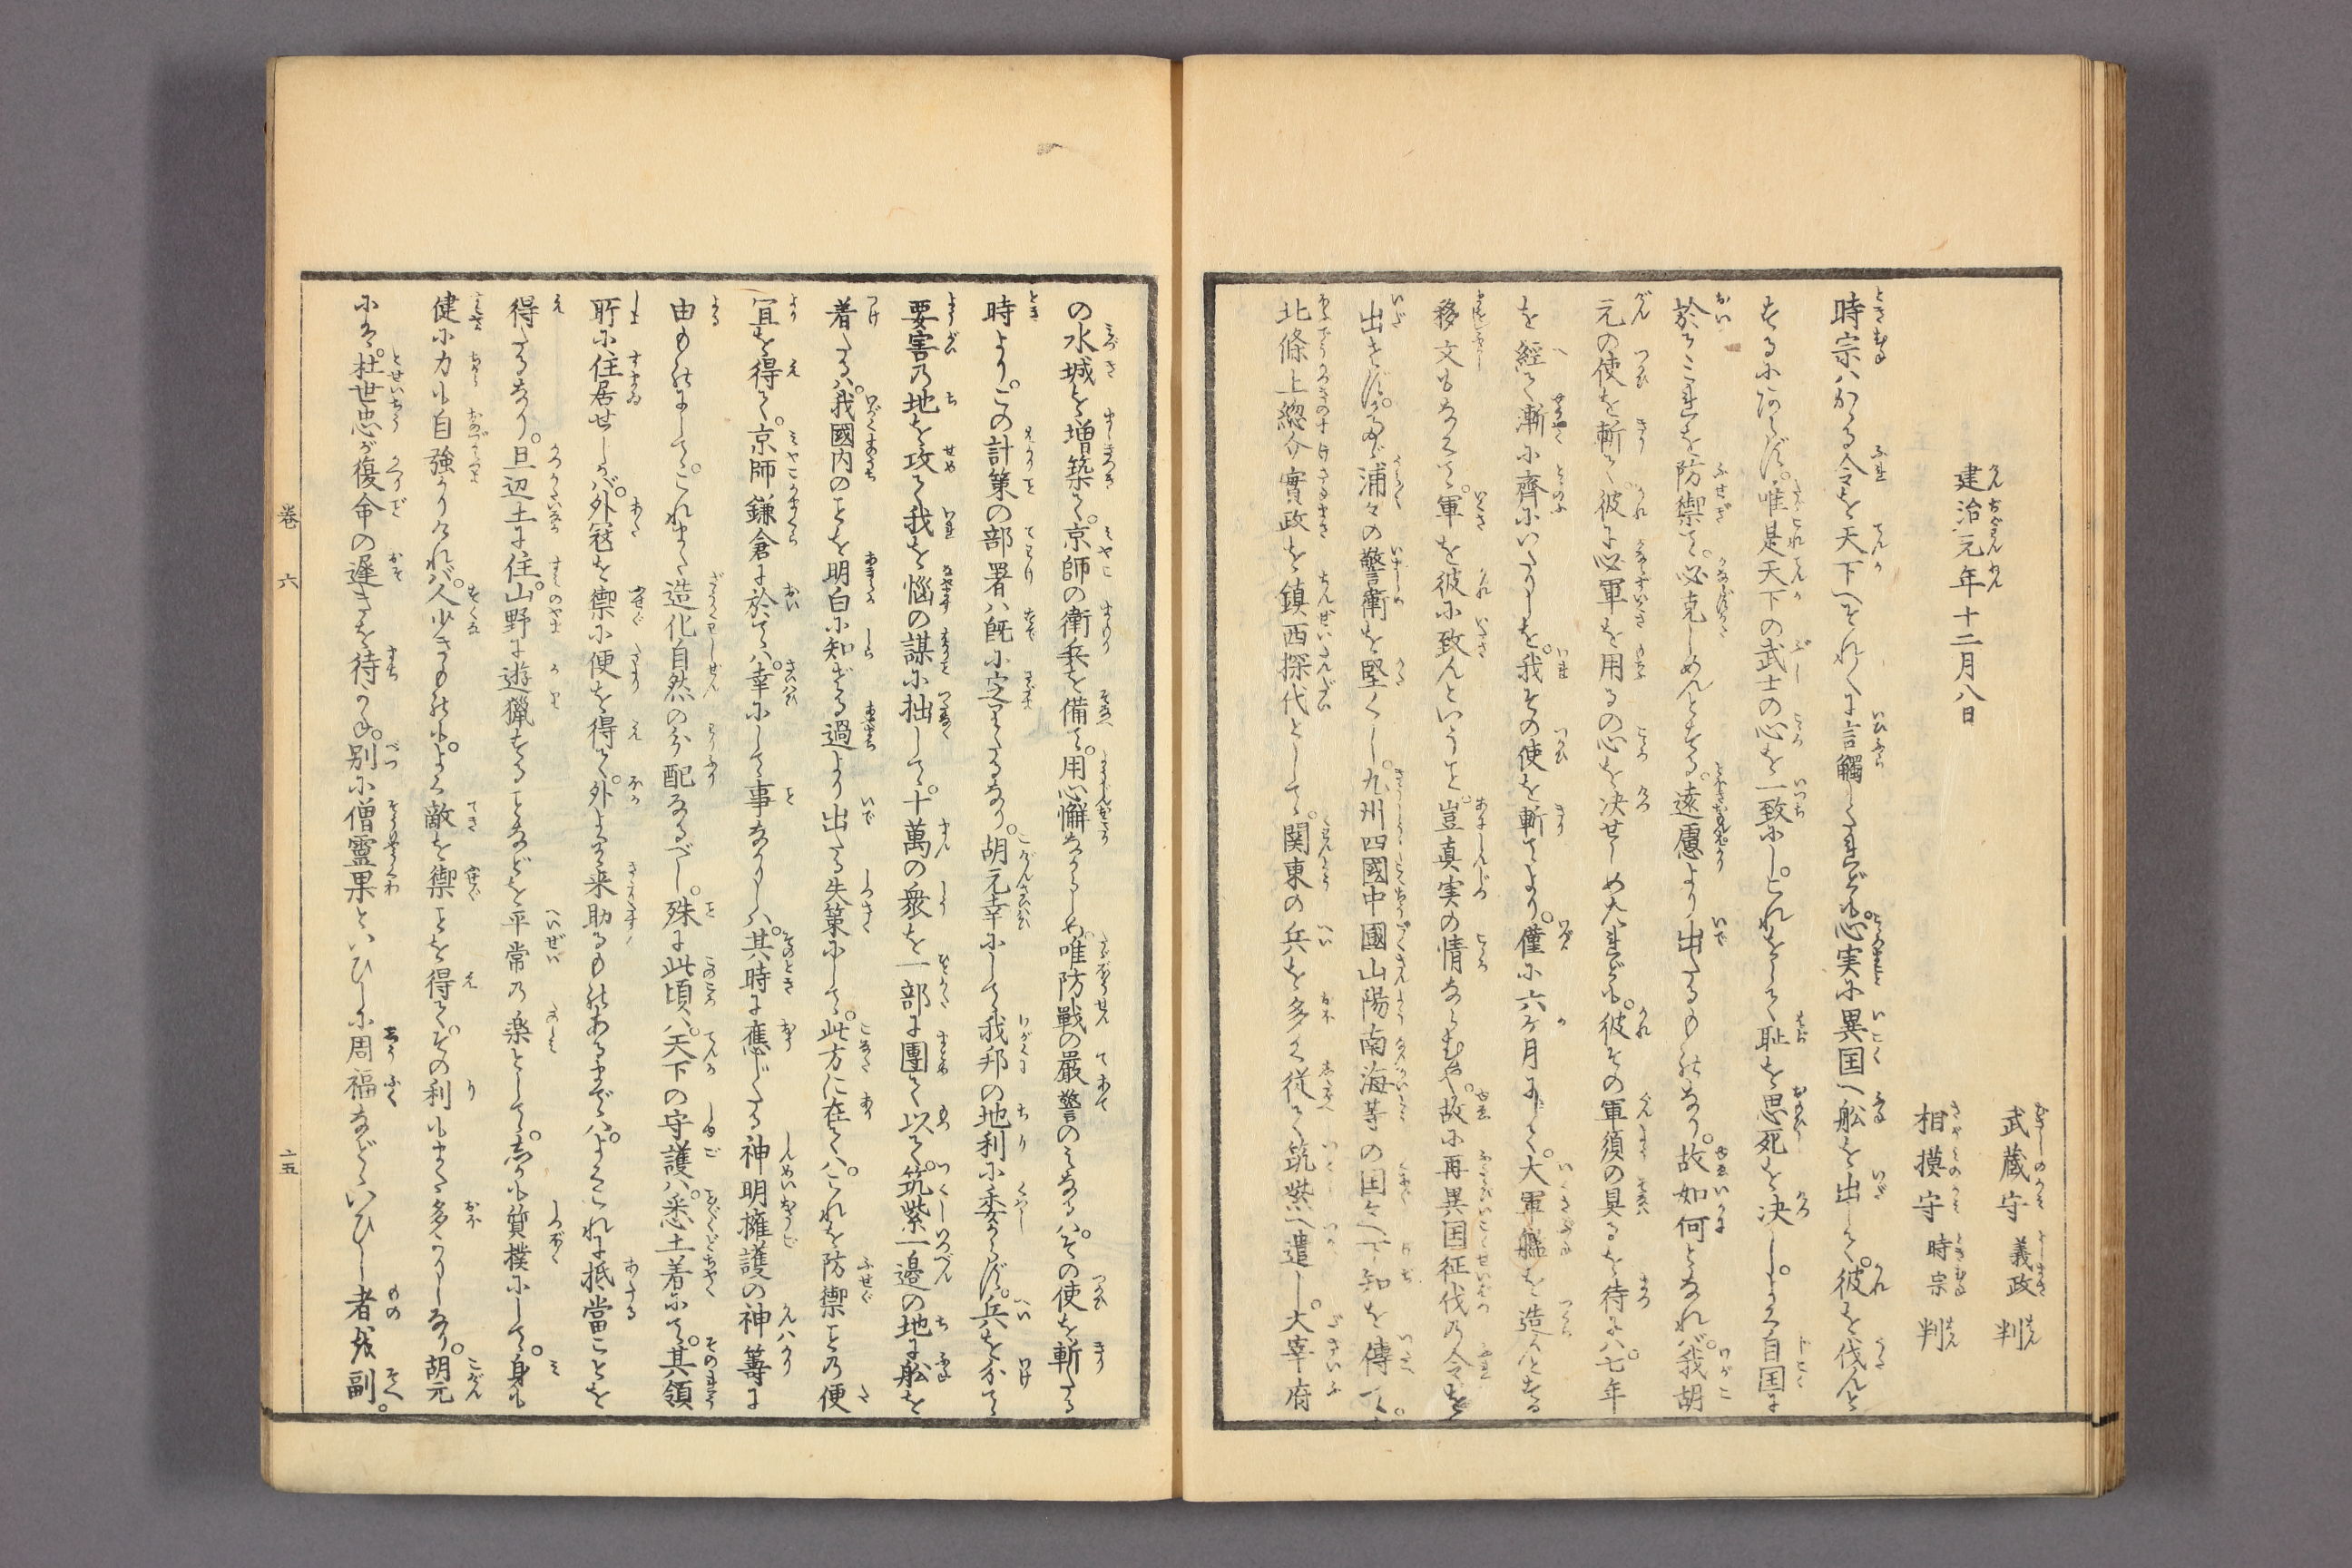 武蔵守 義政 判
相摸守 時宗 判
建治元年十二月八日
時宗ハかゝる令を天下へそれ〳〵に言觸したれども。心実に異国へ舩を出して。彼を伐んと
するにあらず。唯是天下の武士の心を一致にし。これをして耻を思死を决し。よく自国に
於てこれを防禦て。必克しめんとする。遠慮より出たるものなり。故如何となれバ。我胡
元の使を斬て彼に必軍を用るの心を决せしめたれども。彼その軍須の具るを待に八七年
を經て漸に齊にいたりしを。我その使を斬てより。僅に六ケ月にして。大軍艦を造んとする
移文もなくて。軍を彼に致んといふを。豈真実の情ならむや。故に再異国征伐の令を
出さず。たゞ浦々の警衛を堅くし。九州四國中國山陽南海等の国々へ下知を傳て。
北條上総介實政を鎮西探代として。関東の兵を多く従て筑紫へ遣し。大宰府
の水城を増築て。京師の衛兵を備て。用心懈なからしめ唯防戦の嚴警のミなるハ。その使を斬たる
時より。この計策の部署ハ既に定りたるなり。胡元幸にして我邦の地利に委からず。兵を分て
要害の地を攻て我を惱の謀に拙して。十萬の衆を一部に團て以て。筑紫一邉の地に舩を
着たるハ。我國内のことを明白に知ざる過より出たる失策にして。此方に在てハ。これを防禦ことの便
宜を得て。京師鎌倉に於てハ。幸にして事なかりしハ。其時に應じたる神明擁護の神籌に
由ものにして。これまた造化自然の分配なるべし。殊に此頃ハ。天下の守護ハ。悉土着にて。其領
所に住居せしかバ。外冦を禦に便を得て。外より来助るものあるまでハ。よくこれに抵當ことを
得たるなり。且辺土に住。山野に遊獵することなどを平常の楽として。志も質樸にして。身も
健に力も自強かりけれバ。人少きものにも。よく敵を禦ことを得て。その利もまた多かりしなり。胡元
にハ。杜世忠が復命の遲きを待かね。別に僧靈果といひしに周福などゝいひし者を副。
巻 六
十五